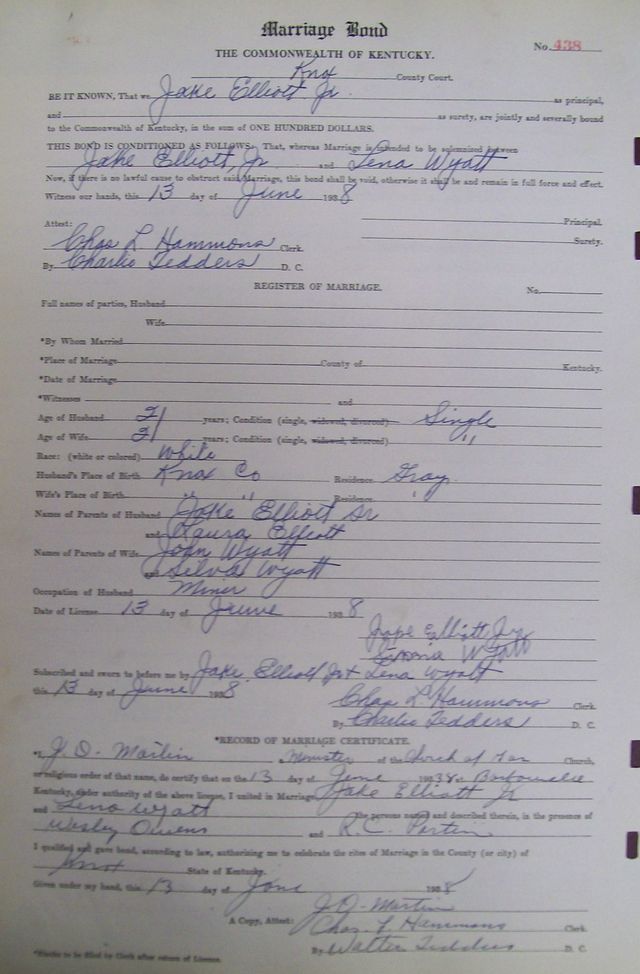 Marriage Bond
No. 438
THE COMMONWEALTH OF KENTUCKY.
Knox County Court.
BE IT KNOWN, That we Jake Elliott Jr. as principal,
and as surety, are jointly and severally bound
to the Commonwealth of Kentucky, in the sum of ONE HUNDRED DOLLARS.
THIS BOND IS CONDITIONED AS FOLLOWS: That, whereas Marriage is intended to be solemnized between
Jake Elliott, Jr and Lena Wyatt
Now, if there is no lawful cause to obstruct said Marriage, this bond shall be void, otherwise it shall be and remain in full force and effect.
Witness our hands, this 13 day of June 1938
Principal.
Attest:
Surety.
Chas L. Hammons Clerk.
By Charlie Tedders D. C.
REGISTER OF MARRIAGE.
No.
Full names of parties, Husband
Wife
*By Whom Married
*Place of Marriage County of Kentucky.
*Date of Marriage
*Witnesses and
Age of Husband 21 years; Condition (single, widowed, divorced) Single
Age of Wife 21 years; Condition (single, widowed, divorced) "
Race: (white or colored) White
Husband's Place of Birth Knox Co Residence Gray
Wife's Place of Birth " " Residence "
Names of Parents of Husband Jake Elliott Sr
and Laura Elliott
Names of Parents of Wife John Wyatt
and Silva Wyatt
Occupation of Husband Miner
Date of License 13 day of June 1938
Jake Elliott Jr
Subscribed and sworn to before me by Jake Elliott Jr + Lena Wyatt
this 13 day of June 1938
Chas L Hammons Clerk.
By Charlie Tedders D. C.
*RECORD OF MARRIAGE CERTIFICATE.
*I, J. D. Martin a Minister of the Church of Church,
or religious order of that name, do certify that on the 13 day of June 1938 at Barbourville
Kentucky, under authority of the above license, I united in Marriage Jake Elliott Jr
and Lena Wyatt the persons named and described therein, in the presence of
Wesley Owens and R. C.
I qualified and gave bond, according to law, authorizing me to celebrate the rites of Marriage in the County (or city) of
Knox State of Kentucky.
Given under my hand, this 13 day of June 1938
J. D. Martin
A Copy, Attest: Chas. L. Hammons Clerk.
By Walter Tedders D. C.
*Blanks to be filled by Clerk after return of License.